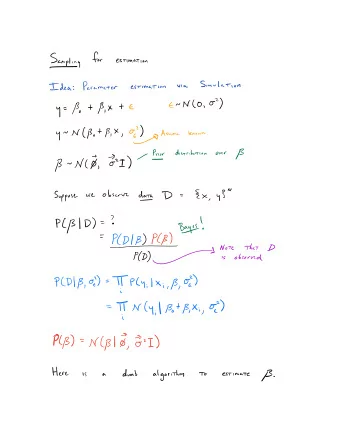 Sampling for estimation
Idea: Parameter estimation via Simulation
y = β₀ + β₁x + ε   ε ~ N(0, σ²)
y ~ N(β₀ + β₁x, σ²) Assume known
β ~ N(0⃗, σ⃗²I) Prior distribution over β
Suppose we observe data D = {x, y}ⁿ
P(β|D) = ?
= P(D|β) P(β) / P(D) Bayes!
Note that D is observed
P(D|β, σ²) = ∏ᵢ P(yᵢ|xᵢ, β, σ²)
= ∏ᵢ N(yᵢ|β₀ + β₁xᵢ, σ²)
P(β) = N(β|0⃗, σ⃗²I)
Here is a dumb algorithm to estimate β.